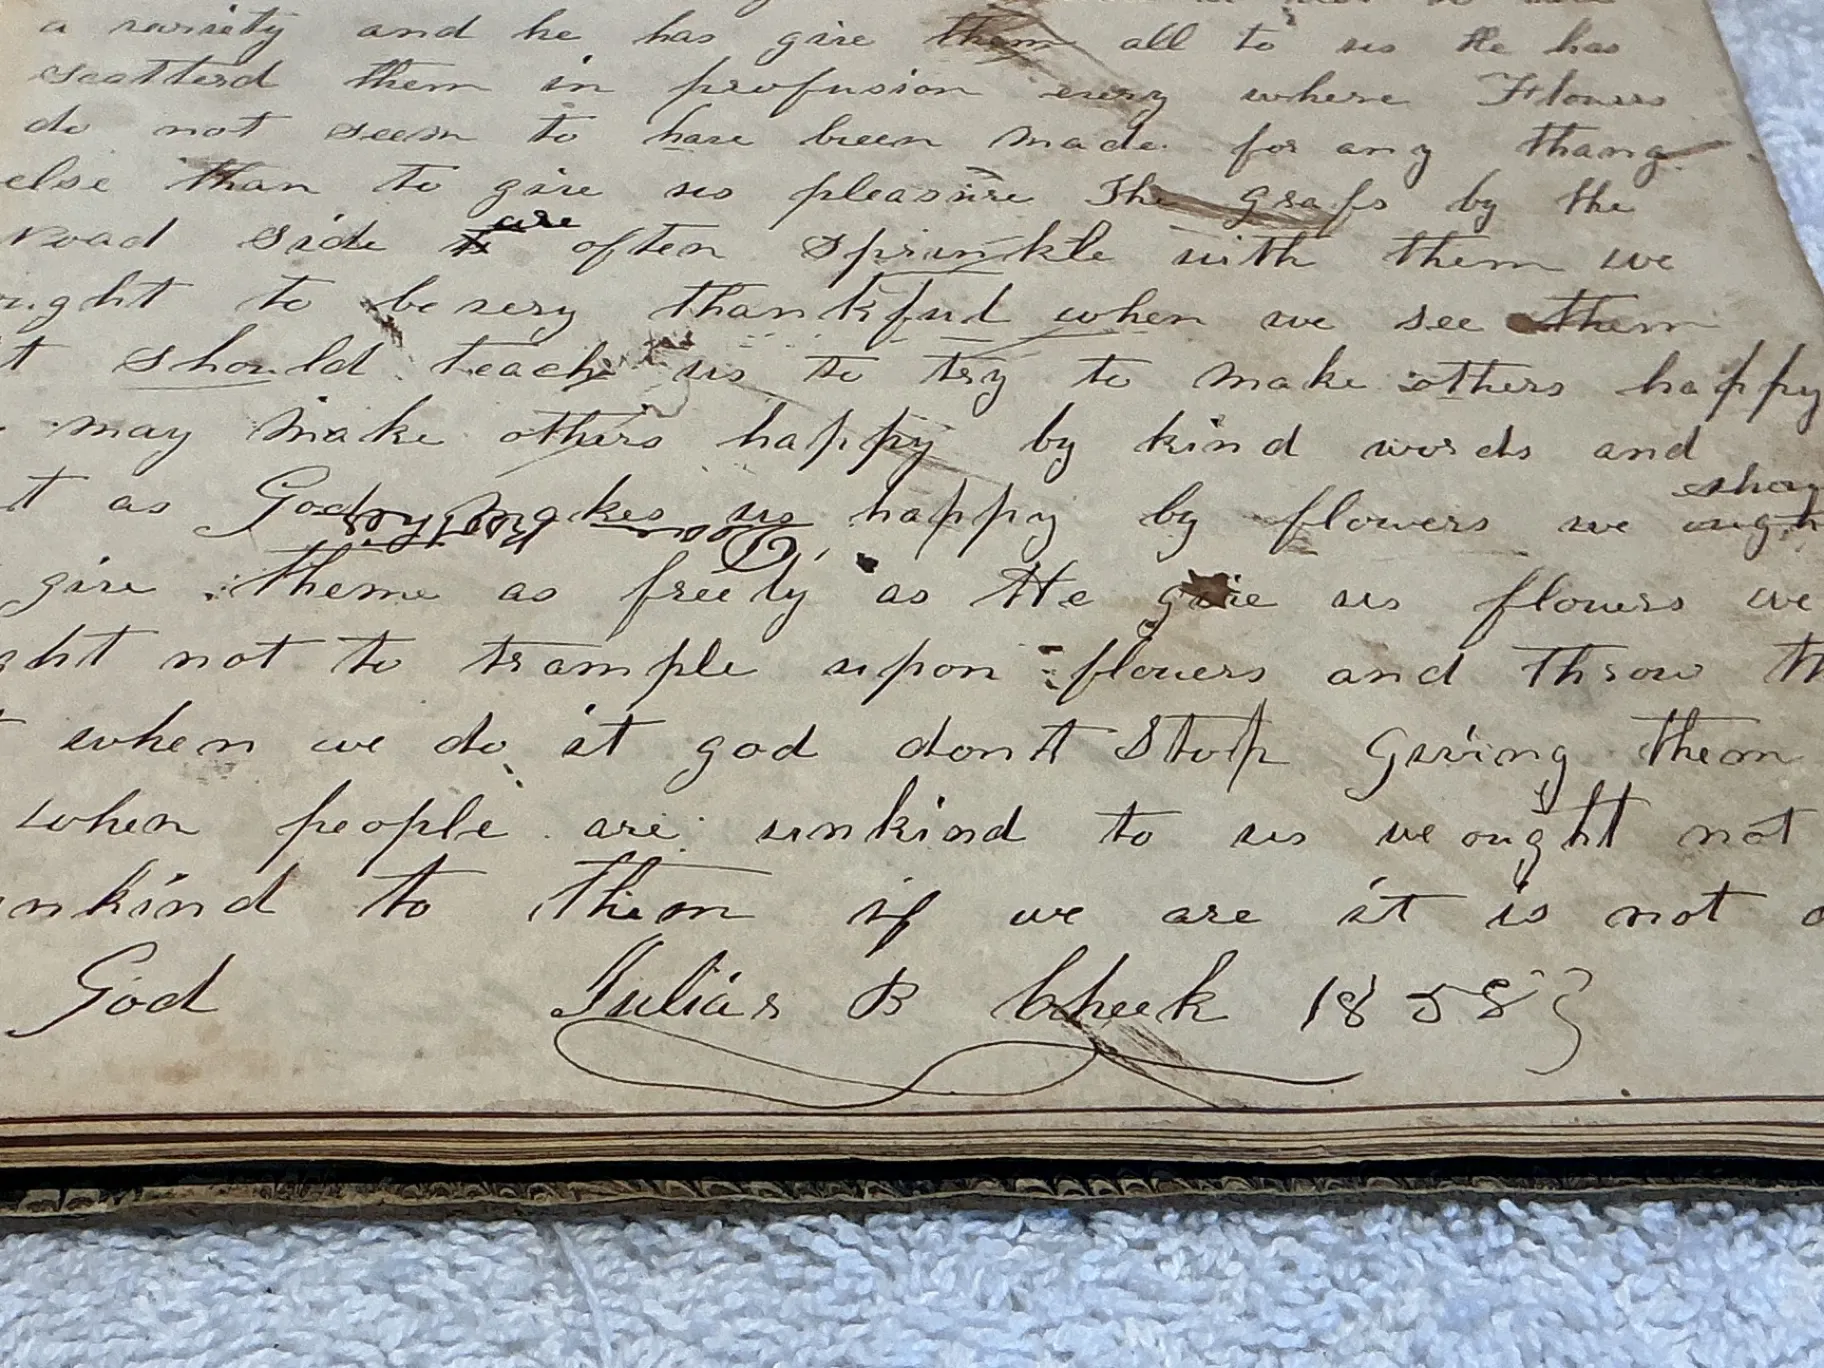 a variety and he has give them all to us He has
scatterd them in profusion every where Flowers
do not seem to have been made for any thang
else than to give us pleasure The grafs by the
road side are often sprinkle with them we
ught to be very thankful when we see them
t should teach us to try to make others happy
may make others happy by kind words and
shou
t as God makes us happy by flowers we ough
give theme as freely as He give us flowers we
ght not to trample upon flowers and throw th
when we do it god dont Stop Giving them
when people are unkind to us we ought not
nkind to them if we are it is not
God Julias B Cheek 1858